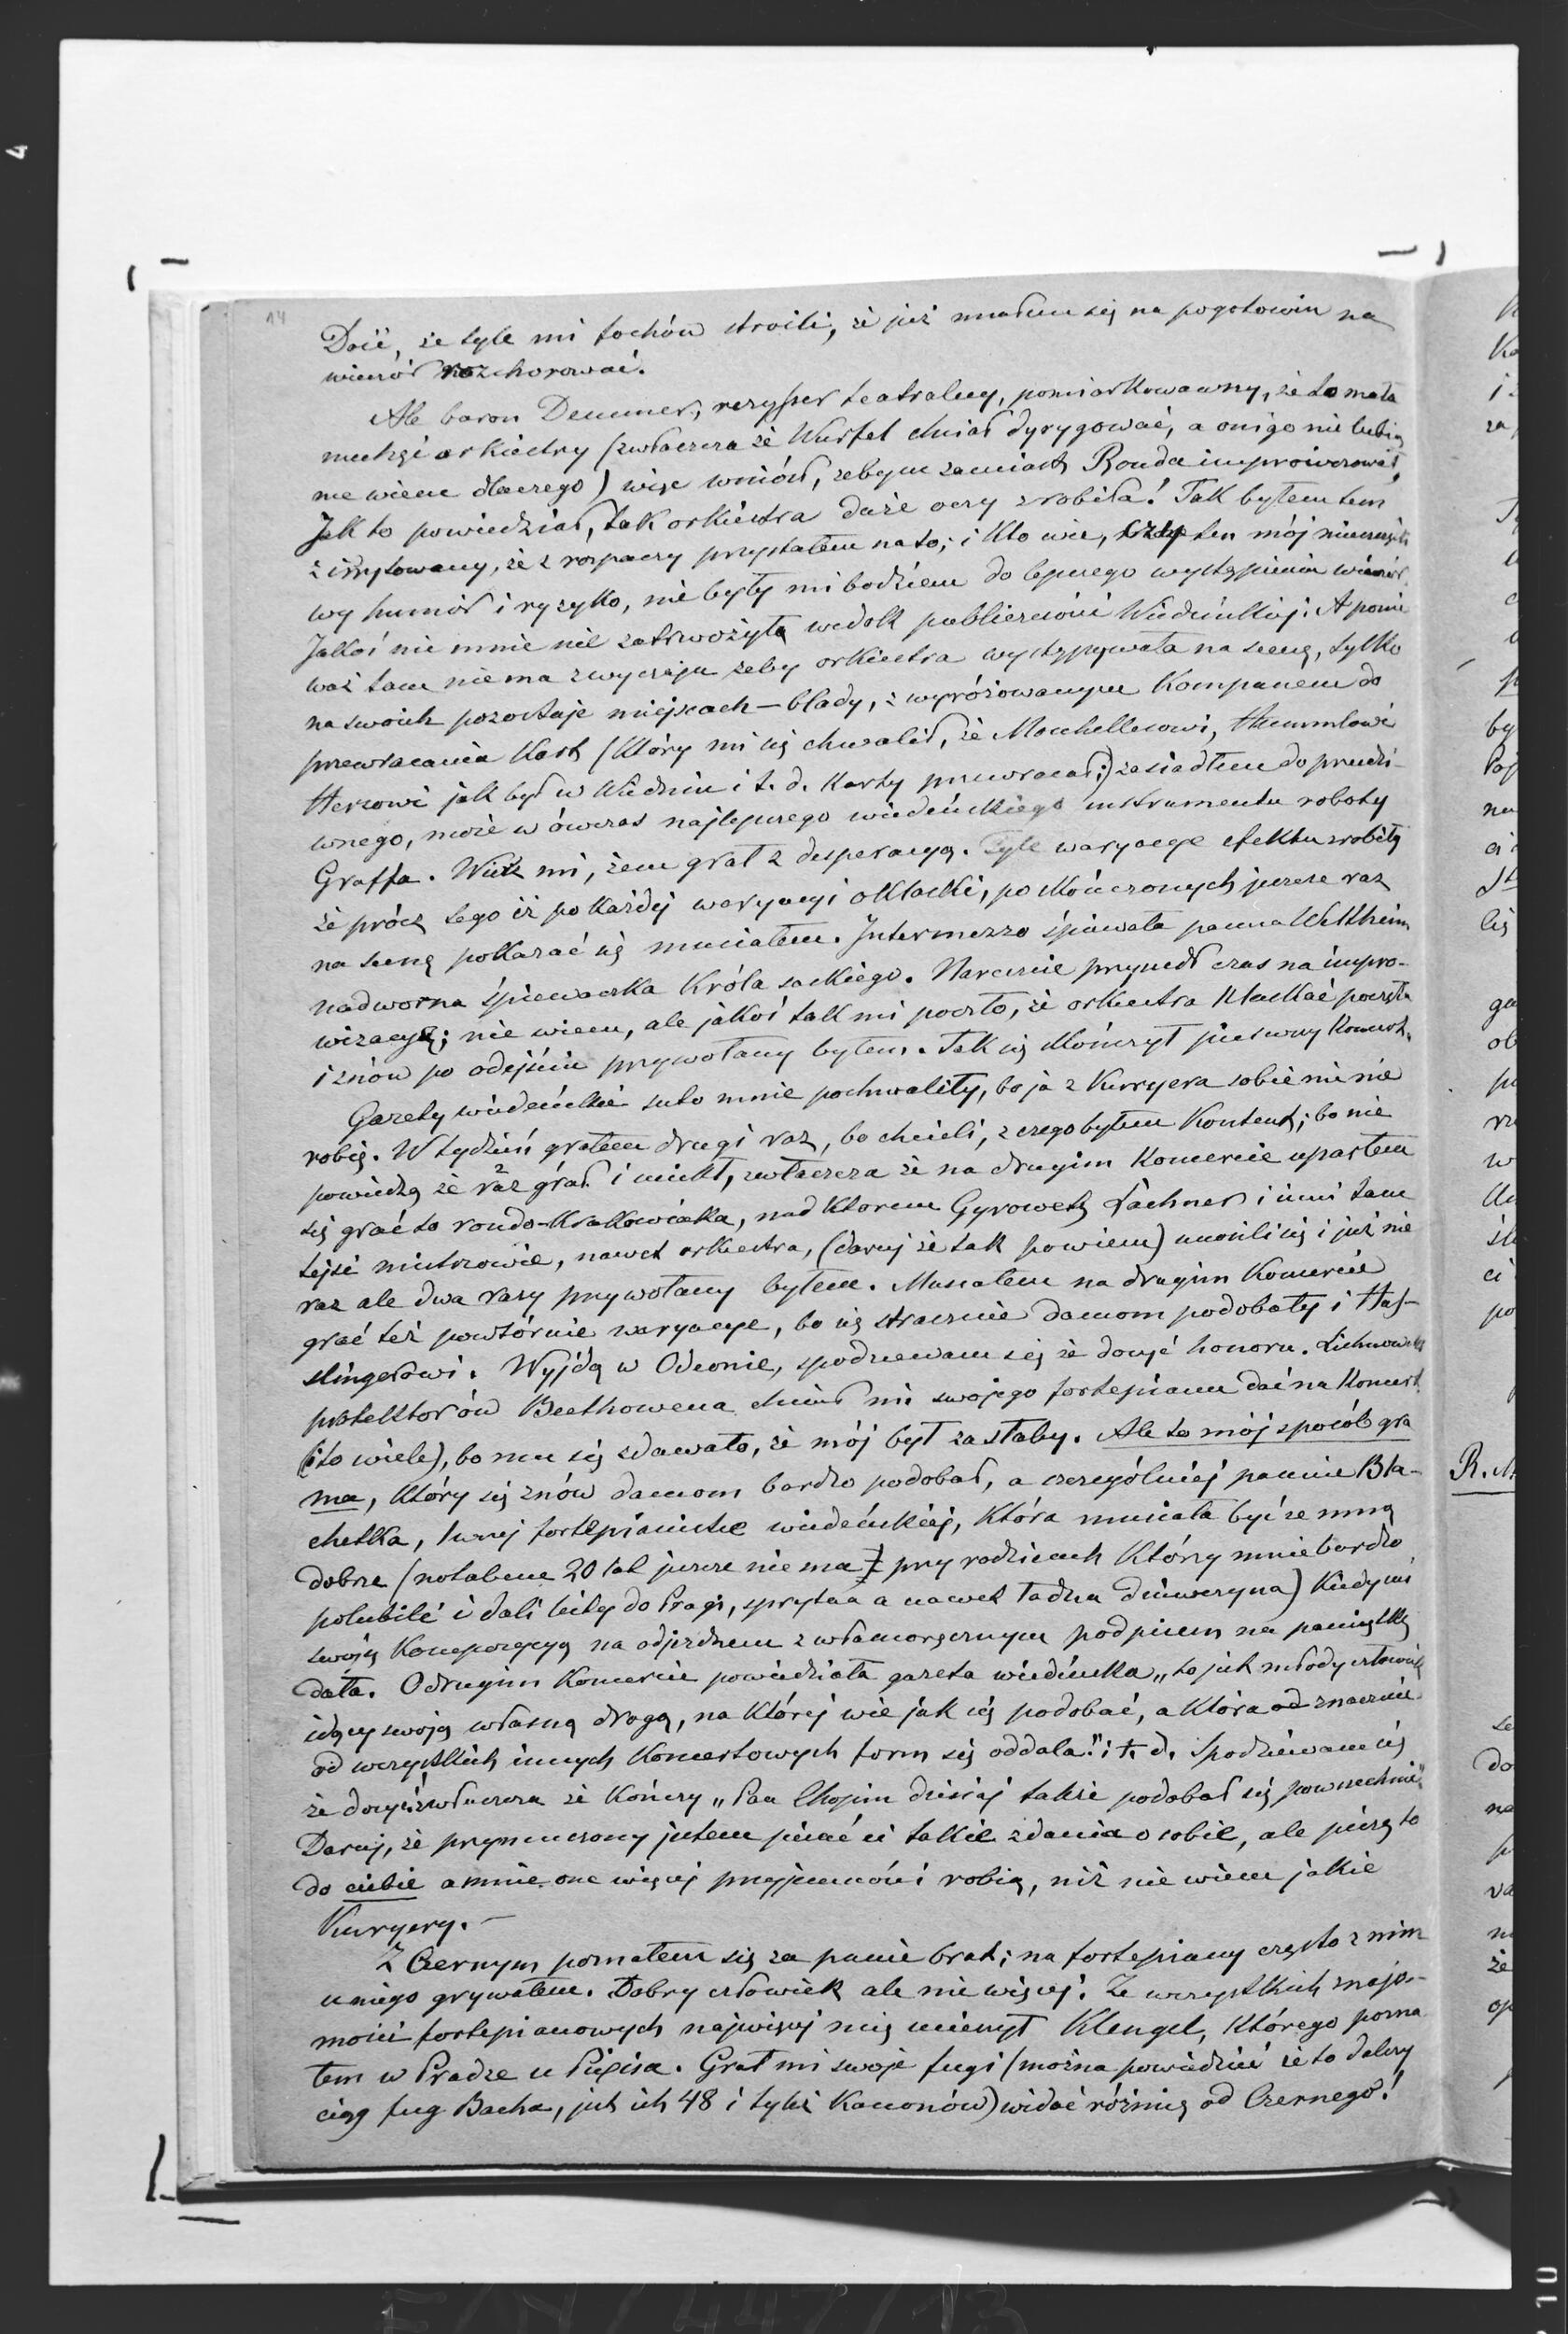 14
Dość, że tyle mi fochów stroili, że już miałem się na pogotowiu na
wieczór rozchorować.
Ale baron Demmer, reżyser teatralny, pomiarkowawszy, że to mała
niechęć orkiestry (zwłaszcza że Würfel chciał dyrygować, a oni go nie lubią
nie wiem dlaczego) więc wniósł, żebym zamiast Ronda improwizował,
Jak to powiedział, tak orkiestra duże oczy zrobiła! Tak byłem tem
zirytowany, że z rozpaczy przystałem na to; i kto wie, czy ten mój nieszczęśli
wy humor i ryzyko, nie były mi bodźcem do lepszego wystąpienia wieczór.
Jakoś nie mnie nie zatrwożyła widok publiczności Wiedeńskiej. A ponie
waż tam niema zwyczaju żeby orkiestra występywała na scenę, tylko
na swoich pozostaje miejscach — blady, z wyróżowanym kompanem do
przewracania kart (który mi się chwalił, że Moschellesowi, Hummlowi
Herzowi jak był w Wiedniu i t. d. karty przewracał;) zasiadłem do prześli-
wnego, może wówczas najlepszego wiedeńskiego instrumentu roboty
Graffa. Wierz mi, żem grał z desperacyą. Tyle waryacye efektu zrobiły
że prócz tego iż po każdej waryacyi oklaski, po skończonych jeszcze raz
na scenę pokazać się musiałem. Intermezzo śpiewała panna Veltheim
nadworna śpiewaczka Króla saskiego. Nareszcie przyszedł czas na impro-
wizacyę; nie wiem, ale jakoś tak mi poszło, że orkiestra klaskać poczęła
i znów po odejściu przywołany byłem. Tak się skończył pierwszy koncert.
Gazety wiedeńskie suto mnie pochwaliły, bo ja z Kurryera sobie nic nie
robię. W tydzień grałem drugi raz, bo chcieli, z czego byłem kontent; bo nie
powiedzą że raz grał i uciekł, zwłaszcza że na drugim koncercie uparłem
się grać to rondo-Krakowiaka, nad którem Gyrowetz Lachner i inni tam
tejsi mistrzowie, nawet orkiestra, (daruj że tak powiem) unosili się i już nie
raz ale dwa razy przywołany byłem. Musiałem na drugim koncercie
grać też powtórnie waryacye, bo się strasznie damom podobały i Has-
slingerowi. Wyjdą w Odeonie, spodziewam się że dosyć honoru. Lichnowski
protektorów Beethowena chciał mi swojego fortepianu dać na koncert
(to wiele), bo mu się zdawało, że mój był za słaby. Ale to mój sposób gra
nia, który się znów damom bardzo podobał, a szczególniej pannie Bla-
chetka, 1wszej fortepianistce wiedeńskiej, która musiała być ze mną
dobrze (notabene 20 lat jeszcze nie ma przy rodzicach którzy mnie bardzo
polubili i dali listy do Pragi, sprytna a nawet ładna dziewczyna) kiedy mi
swoję kompozycyę na odjezdnem z własnoręcznym podpisem na pamiątkę
dała. O drugim koncercie powiedziała gazeta wiedeńska „to jest młody człowiek
idący swoją własną drogą, na której wie jak się podobać, a która od znacznie
od wszystkich innych koncertowych form się oddala" i t. d. Spodziewam się
że dosyć zwłaszcza że kończy „Pan Chopin dzisiaj także podobał się powszechnie".
Daruj, że przymuszony jestem pisać ci takie zdania o sobie, ale piszę to
do ciebie a mnie one więcej przyjemności robią, niż nie wiem jakie
Kuryery. —
Z Czernym poznałem się za panie brat; na fortepiany często z nim
u niego grywałem. Dobry człowiek ale nic więcej. Ze wszystkich znajo-
mości fortepianowych najwięcej mię cieszył Klengel, którego pozna
łem w Pradze u Pixisa. Grał mi swoje fugi (można powiedzieć że to dalszy
ciąg fug Bacha, jest ich 48 i tyleż kanonów) widać różnicę od Czernego!